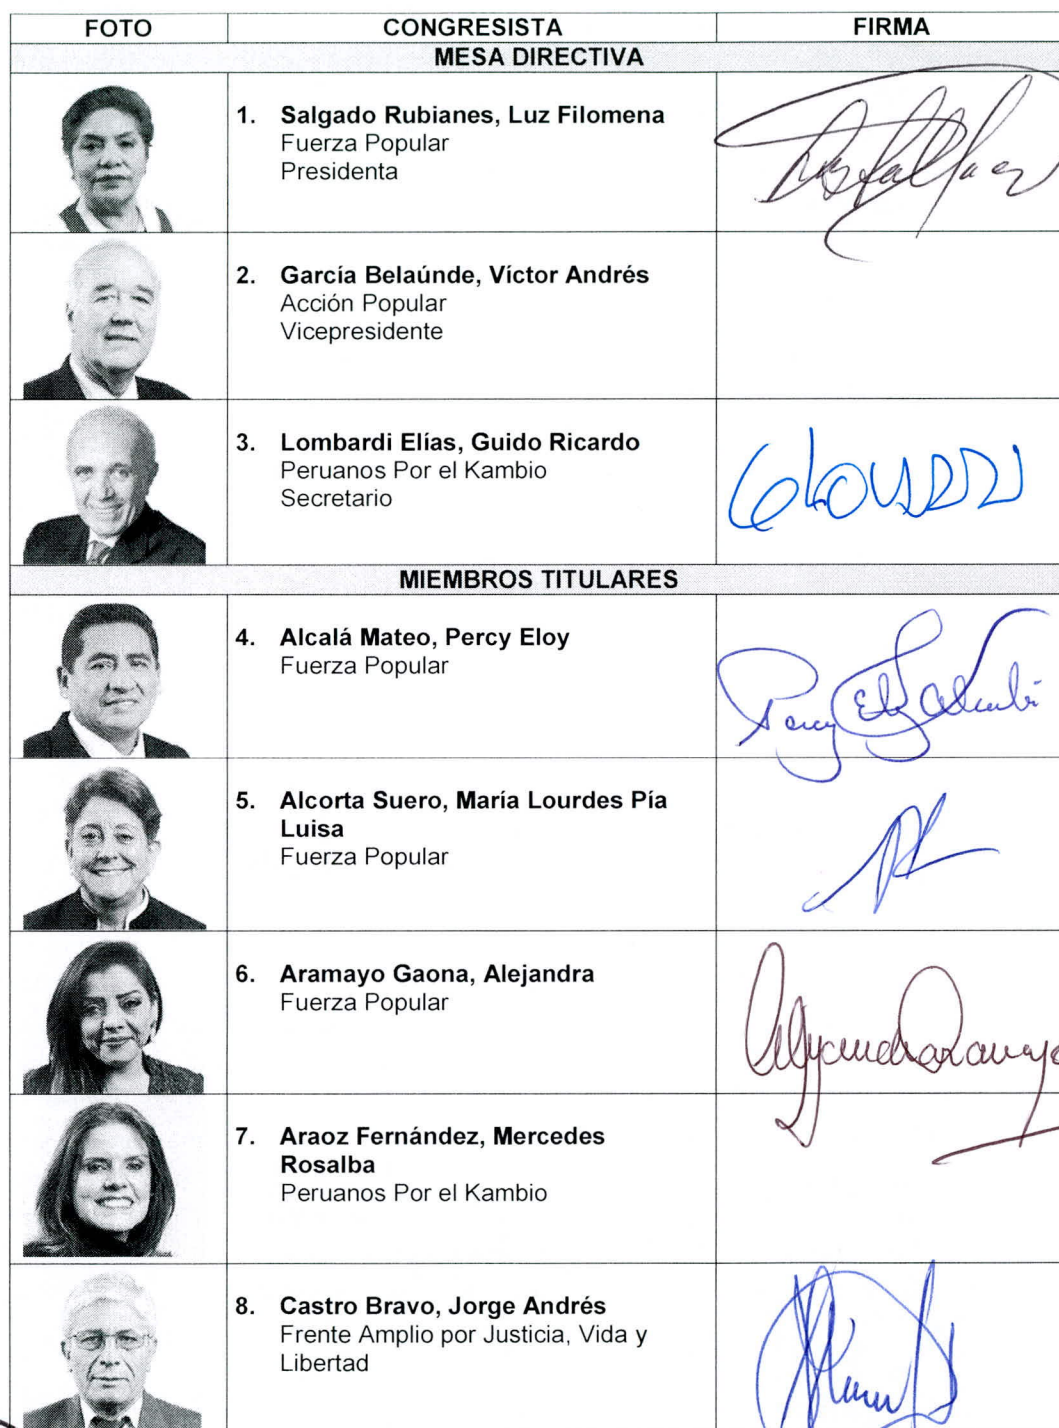 FOTO CONGRESISTA FIRMA
MESA DIRECTIVA
1. Salgado Rubianes, Luz Filomena
Fuerza Popular
Presidenta
2. García Belaúnde, Víctor Andrés
Acción Popular
Vicepresidente
3. Lombardi Elías, Guido Ricardo
Peruanos Por el Kambio
Secretario
MIEMBROS TITULARES
4. Alcalá Mateo, Percy Eloy
Fuerza Popular
Percy Eloy
5. Alcorta Suero, María Lourdes Pía
Luisa
Fuerza Popular
6. Aramayo Gaona, Alejandra
Fuerza Popular
7. Araoz Fernández, Mercedes
Rosalba
Peruanos Por el Kambio
8. Castro Bravo, Jorge Andrés
Frente Amplio por Justicia, Vida y
Libertad